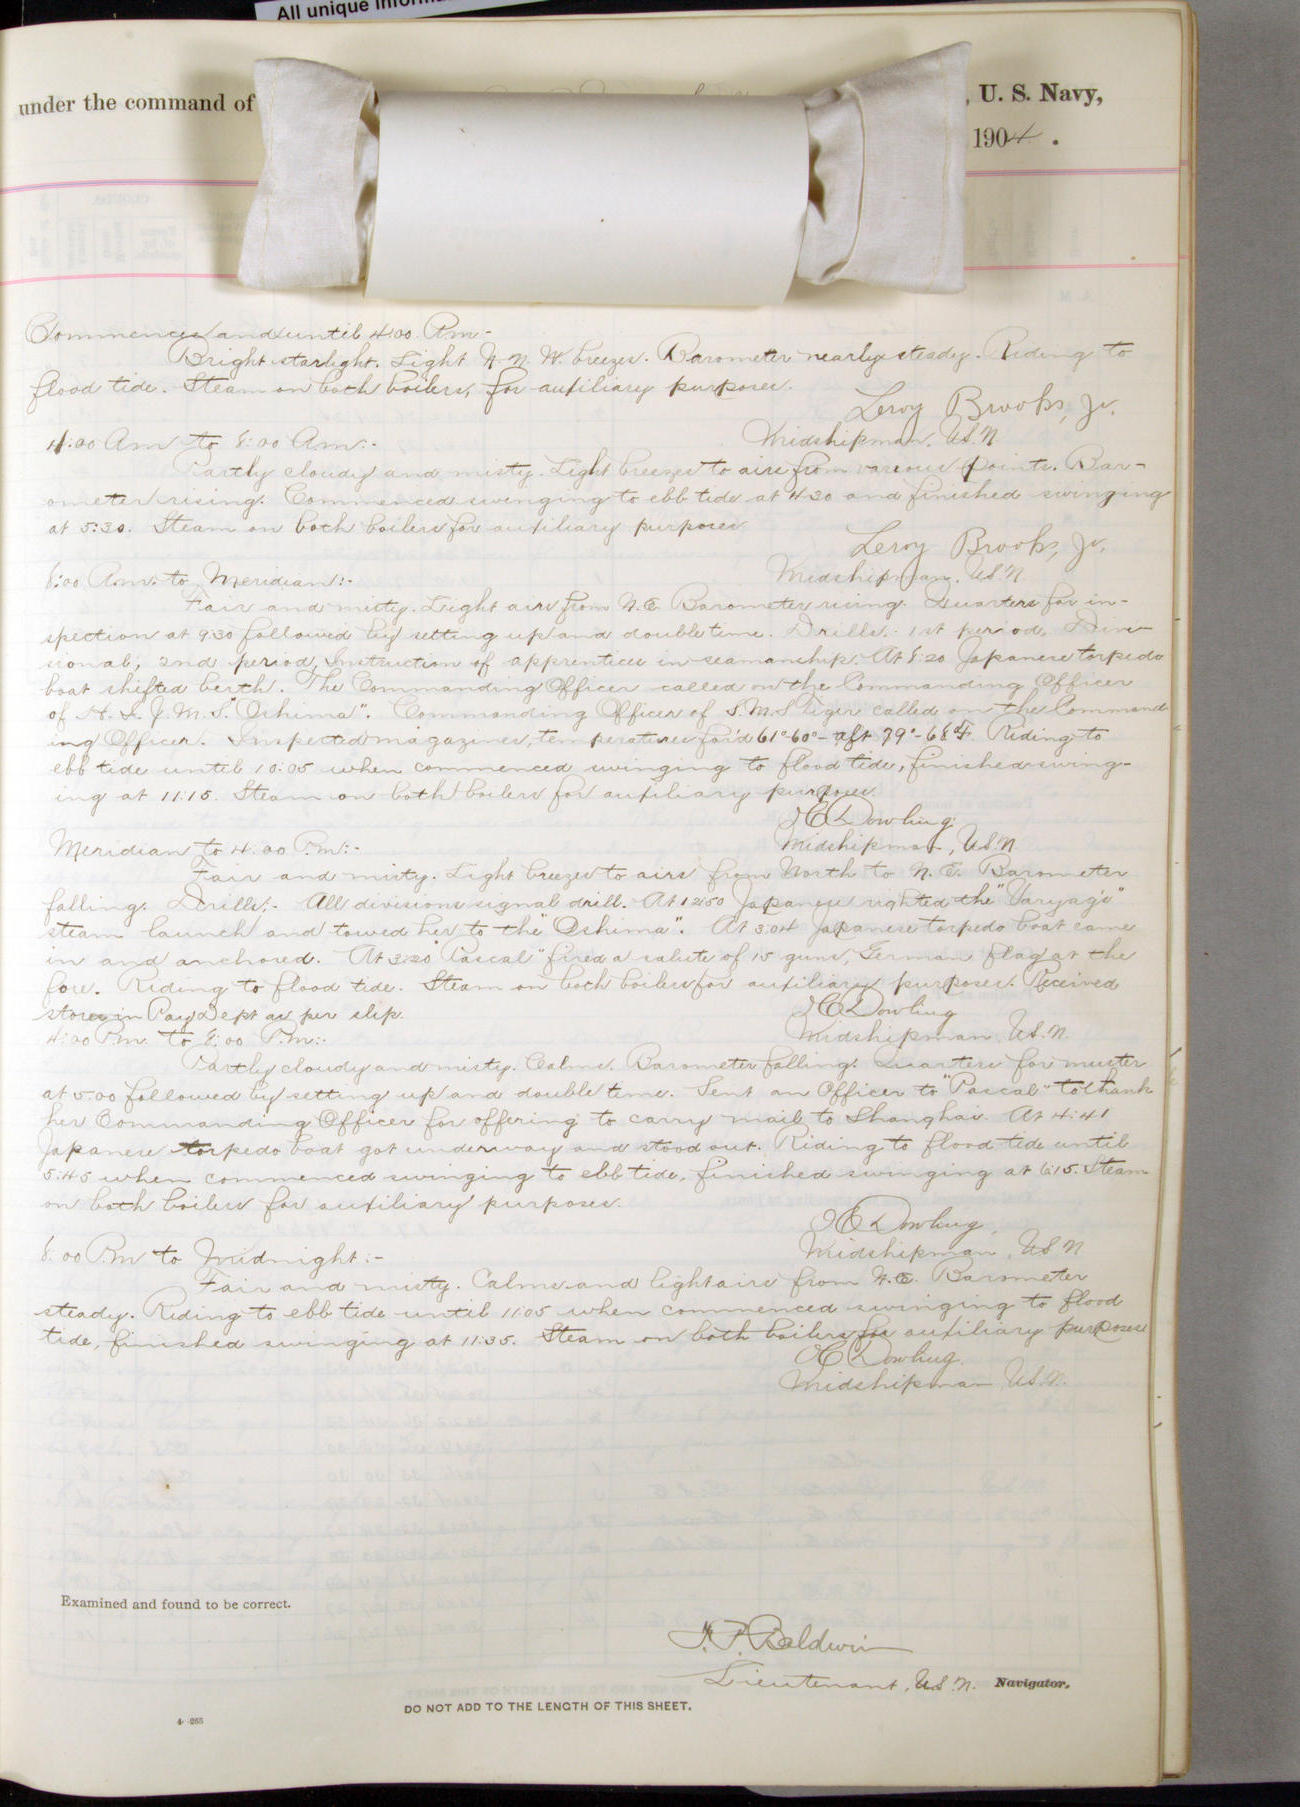 All unique
under the command of
, U. S. Navy,
1904 .
Commences and until 4:00 Am-
Bright starlight. Light N. N. W. breezes. Barometer nearly steady. Riding to
flood tide. Steam on both boilers, for auxiliary purposes.
Leroy Brooks, Jr.
Midshipman, U.S.N
4:00 Am to 8:00 Am:-
Partly cloudy and misty. Light breezes to airs from various points. Bar-
ometer rising. Commenced swinging to ebb tide at 4:30 and finished swinging
at 5:30. Steam on both boilers for auxiliary purposes
Leroy Brooks, Jr.
Midshipman. U.S.N
8:00 Am. to Meridian:-
Fair and misty. Light airs from N.E. Barometer rising. Quarters for in-
spection at 9:30 followed by setting up and double time. Drills:- 1st period, Divi-
sional; 2nd period, Instruction of apprentices in seamanship. At 8:20 Japanese torpedo
boat shifted berth. The Commanding Officer called on the Commanding Officer
of H. I. J. M. S. "Oshima". Commanding Officer of S.M.S Tiger called on the Command-
ing Officer. Inspected magazines, temperatures for'd 61°-60°- aft 79°-68°F. Riding to
ebb tide until 10:05 when commenced swinging to flood tide, finished swing-
ing at 11:15. Steam on both boilers for auxiliary purposes.
Dowling
Midshipman, U.S.N
Meridian to 4:00 P.m:-
Fair and misty. Light breezes to airs from North to N.E. Barometer
falling. Drills:- All divisions signal drill. At 12:50 Japanese righted the "Varyag's"
steam launch and towed her to the "Oshima". At 3:04 Japanese torpedo boat came
in and anchored. At 3:20 "Pascal" fired a salute of 15 guns, German flag at the
fore. Riding to flood tide. Steam on both boilers for auxiliary purposes. Received
stores in Pay Dept as per slip.
Dowling
Midshipman U.S.N.
4:00 P.m. to 8:00 P.m:-
Partly cloudy and misty. Calms. Barometer falling. Quarters for muster
at 5:00 followed by setting up and double time. Sent an Officer to "Pascal" to thank
her Commanding Officer for offering to carry mail to Shanghai. At 4:41
Japanese torpedo boat got underway and stood out. Riding to flood tide until
5:45 when commenced swinging to ebb tide, finished swinging at 6:15. Steam
on both boilers for auxiliary purposes.
Dowling,
Midshipman, U.S.N
8:00 P.m to Midnight:-
Fair and misty. Calms and light airs from N.E. Barometer
steady. Riding to ebb tide until 11:05 when commenced swinging to flood
tide, finished swinging at 11:35. Steam on both boilers for auxiliary purposes
Dowling.
Midshipman U.S.N.
Examined and found to be correct.
Baldwin
Lieutenant, U.S.N. Navigator.
DO NOT ADD TO THE LENGTH OF THIS SHEET.